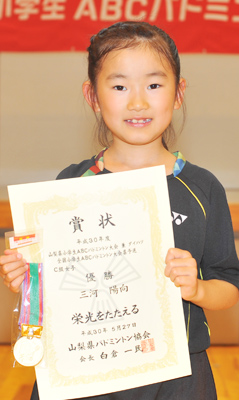 小学生ABCバドミン
YONEX
賞状
平成30年度
山梨県小学生ABCバドミントン大会 兼 ダイハツ
全国小学生ABCバドミントン大会県予選
C級女子
優勝
三河 陽向
栄光をたたえる
平成30年 5月27日
山梨県バドミントン協会
会長 白倉一民